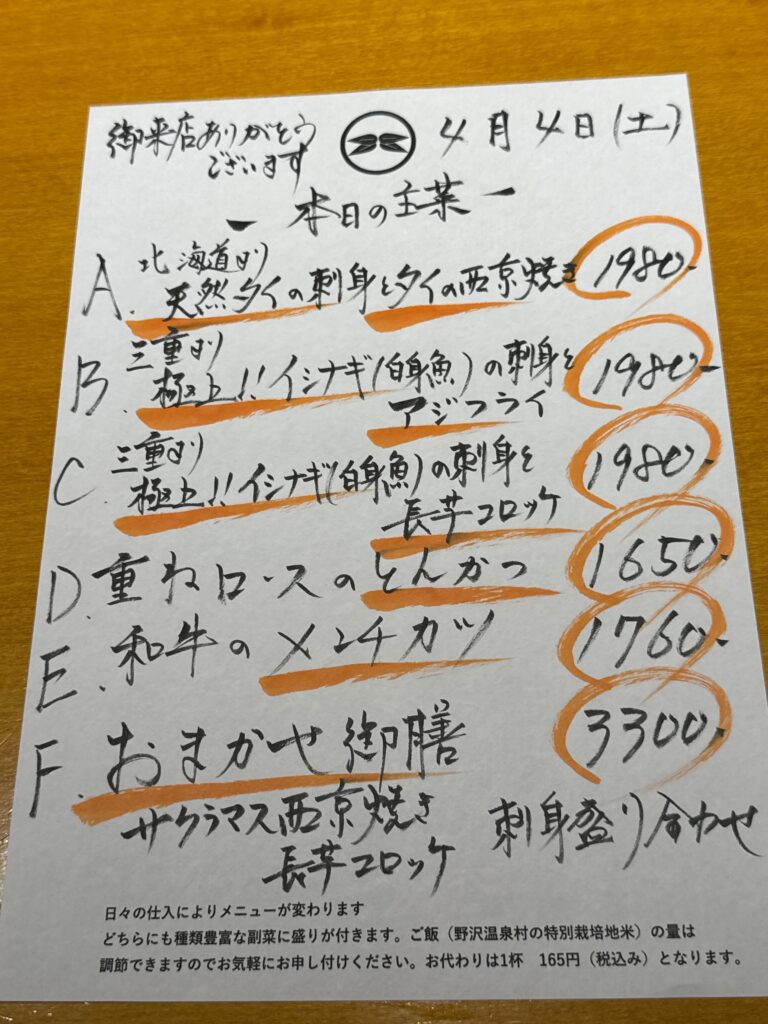 御来店ありがとう
ございます
4月4日(土)
ー 本日の主菜 ー
A. 北海道より
天然タイの刺身とタイの西京焼き 1980-
B. 三重より
極上!!イシナギ(白身魚)の刺身と
アジフライ 1980-
C. 三重より
極上!!イシナギ(白身魚)の刺身と
長芋コロッケ 1980-
D. 重ねロースのとんかつ 1650-
E. 和牛のメンチカツ 1760-
F. おまかせ御膳 3300-
サクラマス西京焼き 刺身盛り合わせ
長芋コロッケ
日々の仕入によりメニューが変わります
どちらにも種類豊富な副菜に盛りが付きます。ご飯（野沢温泉村の特別栽培地米）の量は
調節できますのでお気軽にお申し付けください。お代わりは1杯　165円（税込み）となります。